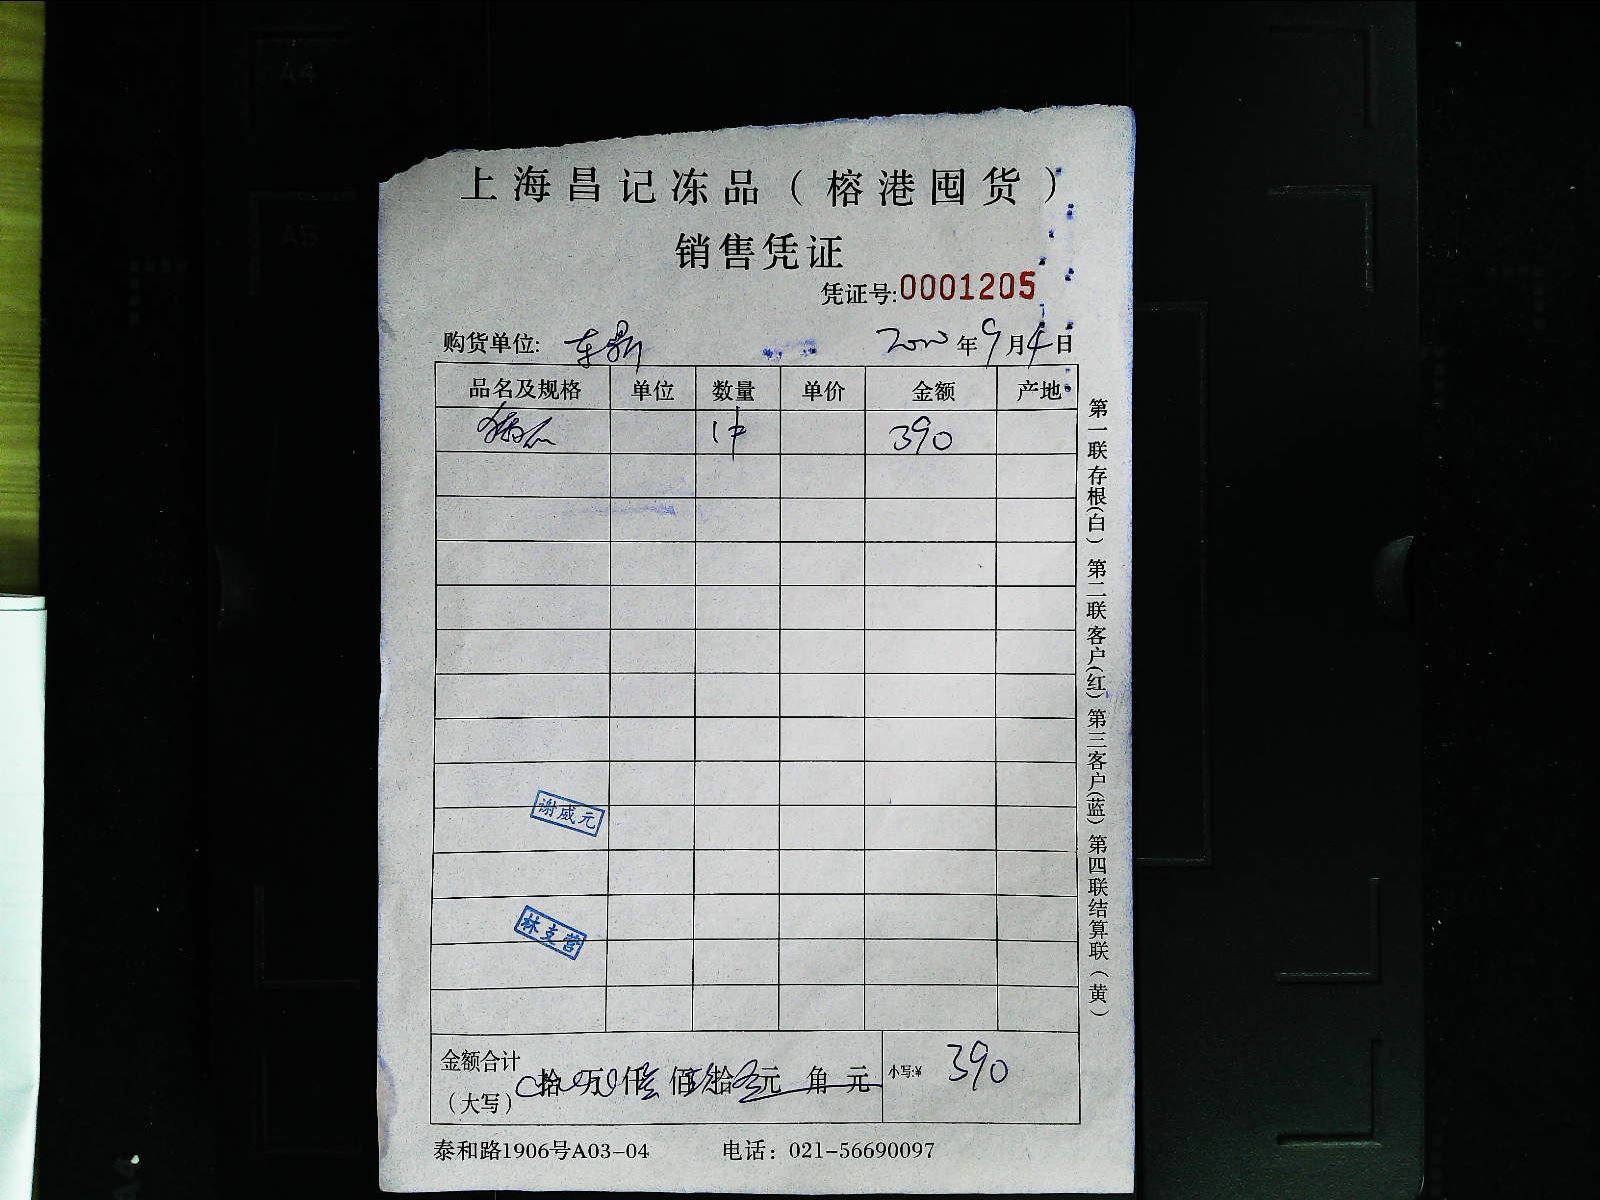 上海昌记冻品（榕港囤货）
销售凭证
凭证号:0001205
购货单位: 东鼎 年9月4日
品名及规格 单位 数量 单价 金额 产地
1中 390
谢威元
林支营
金额合计（大写） 拾 万 仟 佰 拾 元 角 元 小写:¥ 390
泰和路1906号A03-04 电话：021-56690097
第一联存根(白) 第二联客户(红) 第三客户(蓝) 第四联结算联(黄)
A4
A5